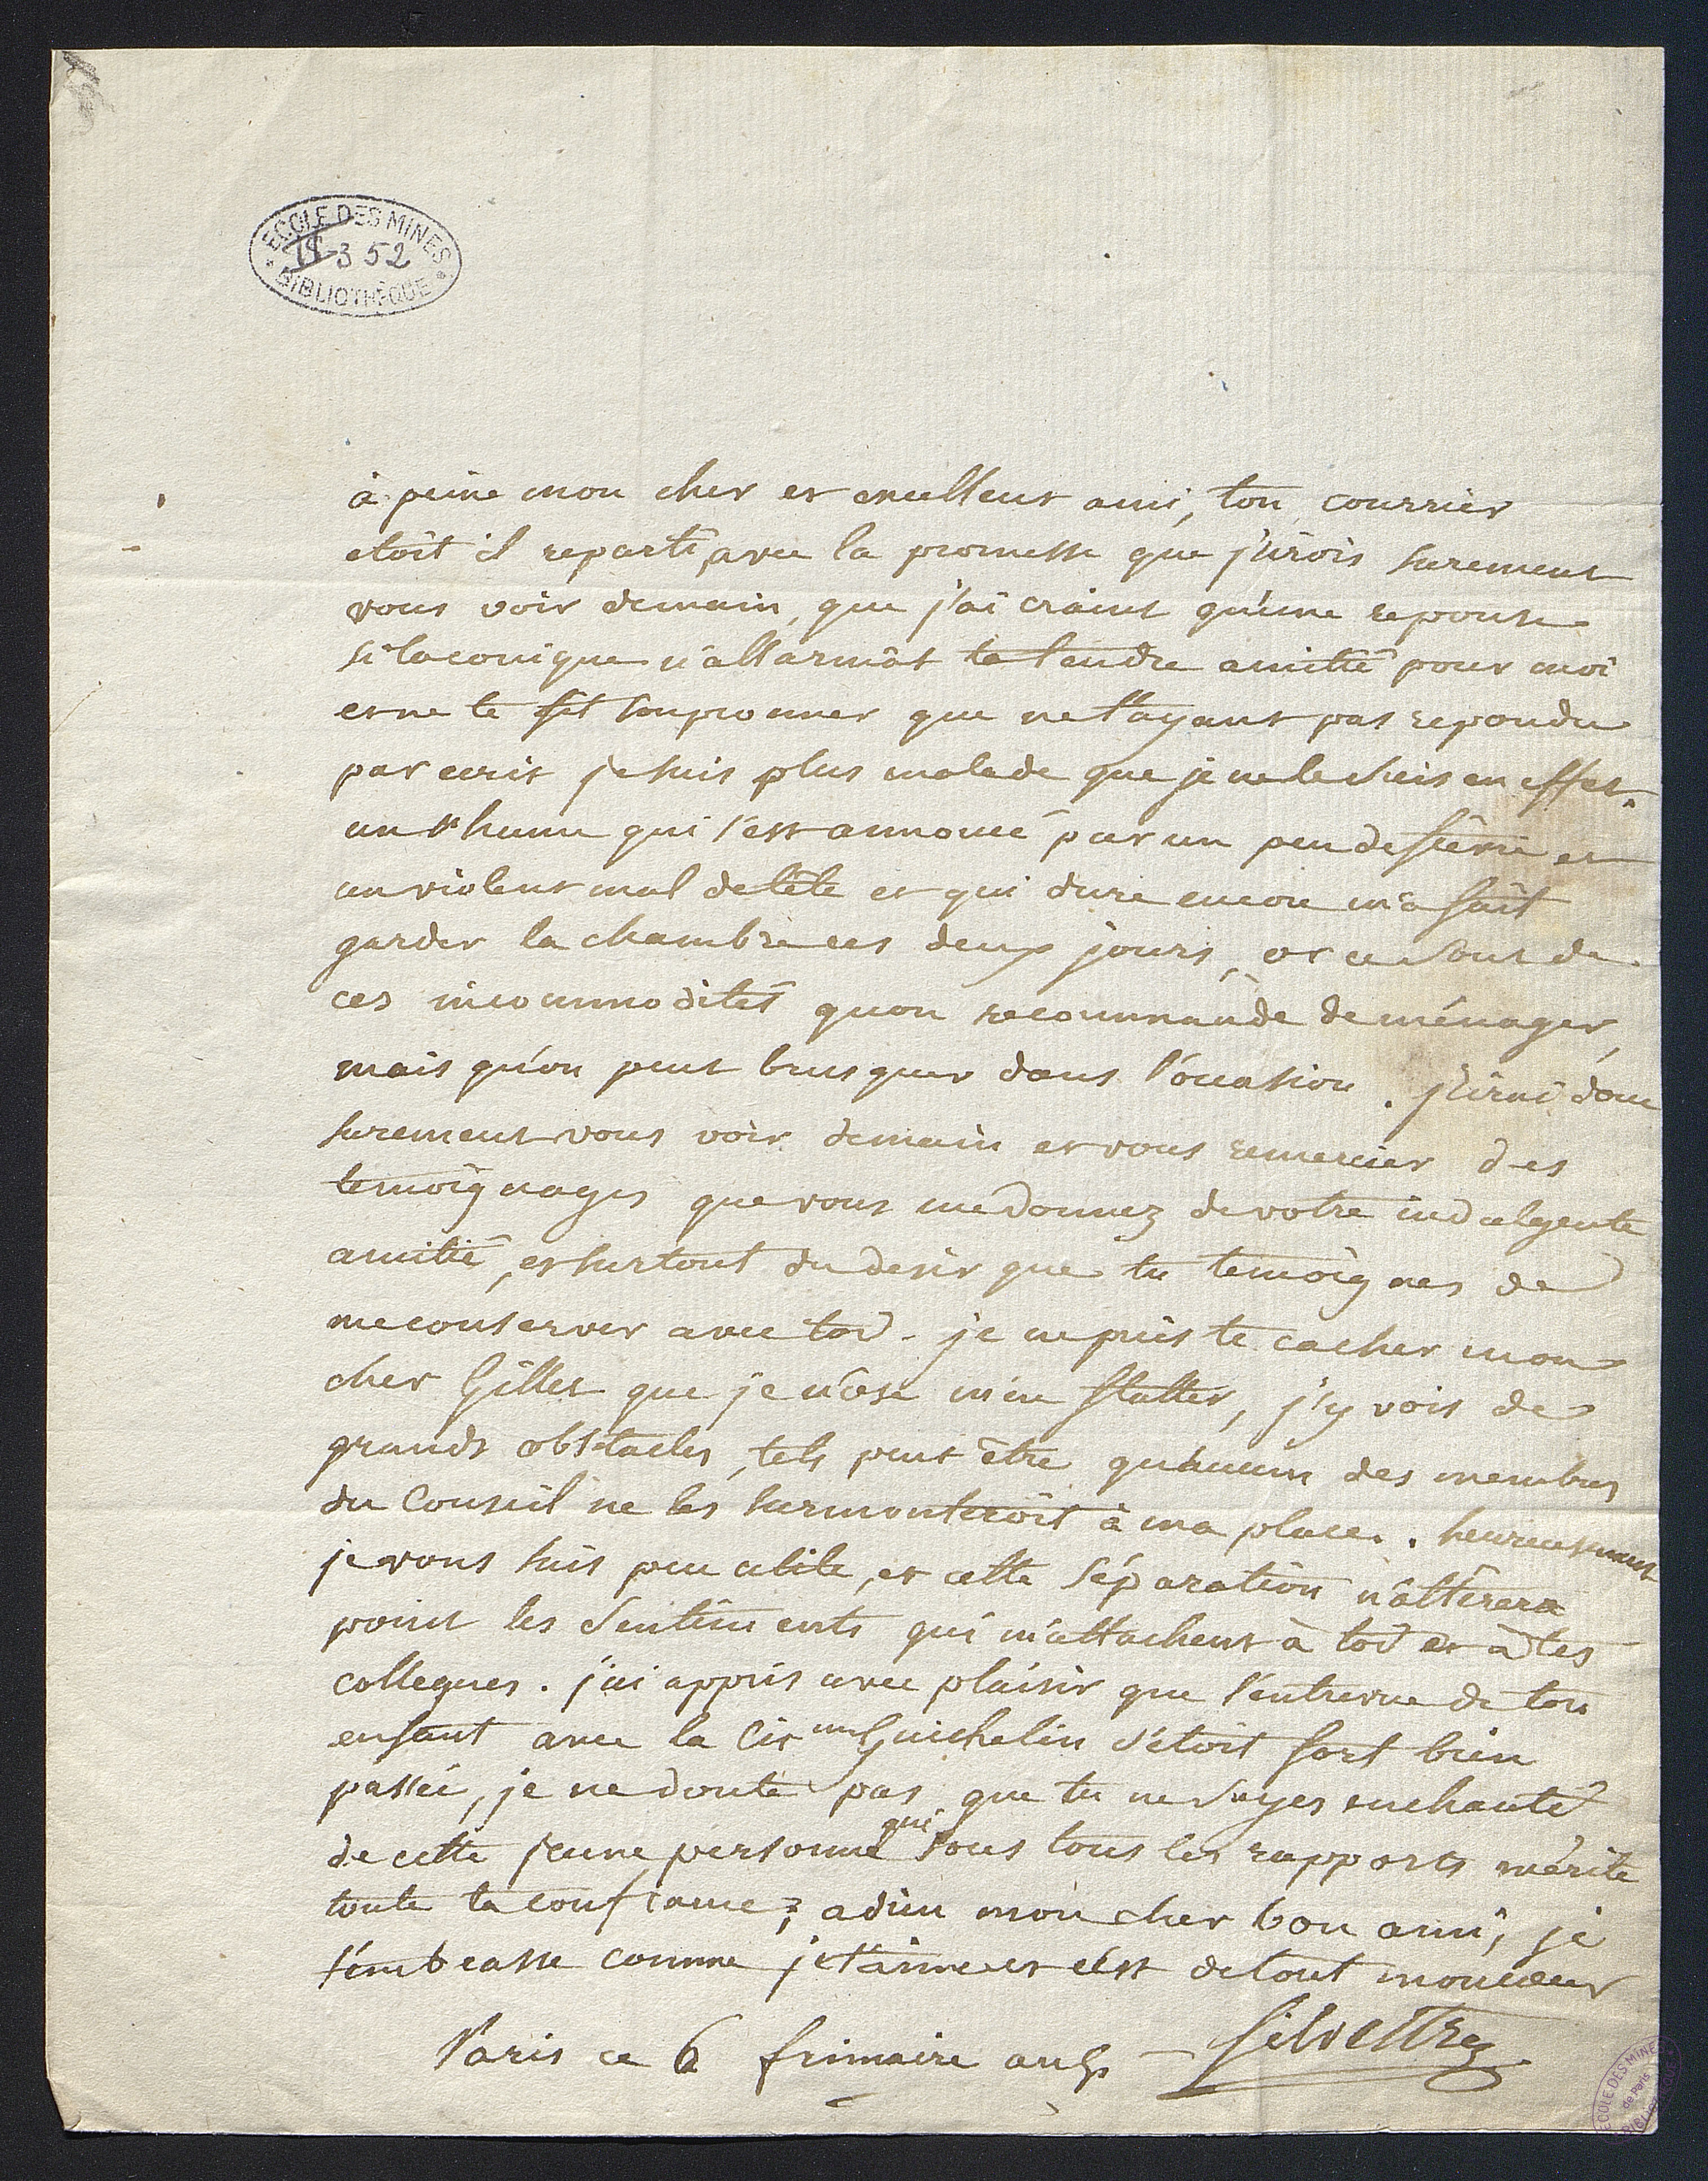 ECOLE DES MINES
18352
BIBLIOTHÈQUE
à peine mon cher et excellent ami, ton courrier
etoit il reparti, avec la promesse que j'irois surement
vous voir demain, que j'ai craint qu'une reponse
si laconique n'allarmât ta tendre amitié pour moi
et ne te fit soupconner que ne t'ayant pas repondu
par ecrit je suis plus malade que je ne le suis en effet.
un rhume qui s'est annoncé par un peu de fievre et
un violent mal de tête et qui dure encore m'a fait
garder la chambre ces deux jours, or ce sont de
ces incommodités quon recommande de ménager,
mais qu'on peut brusquer dans l'occasion. j'irai donc
surement vous voir demain et vous remercier des
temoignages que vous me donnez de votre indulgente
amitié, et surtout du desir que tu temoignes de
me conserver avec toi. je ne puis te cacher mon
cher Gillet que je n'ose m'en flatter, j'y vois de
grands obstacles, tels peut être qu'aucun des membres
du Conseil ne les surmonteroit à ma place. heureusement
je vous suis peu utile, et cette séparation n'alterera
point les sentiments qui m'attachent à toi et à tes
collegues. j'ai appris avec plaisir que l'entrevue de ton
enfant avec la Cit.ne Guichelin s'etoit fort bien
passée, je ne doute pas que tu ne soyes enchanté
de cette jeune personne qui sous tous les rapports mérite
toute ta confiance; adieu mon cher bon ami, je
t'embrasse comme je t'aime et c'est de tout mon cœur
Silvestre
Paris ce 6 frimaire an
ECOLE DES MINES
de Paris